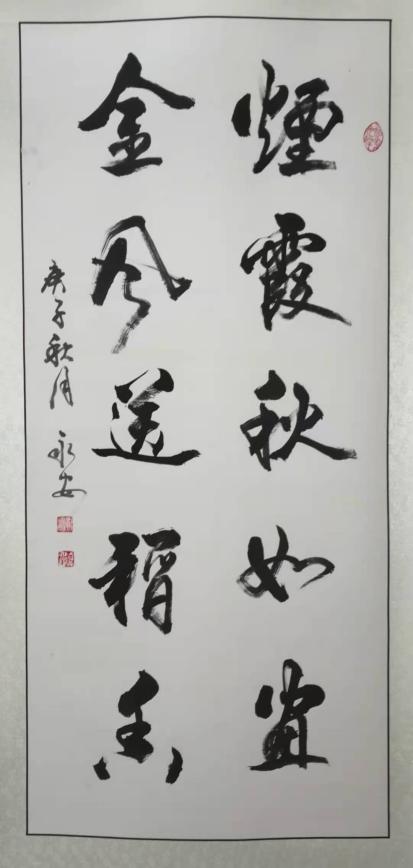 煙霞秋如畫
金風送稻香
庚子秋月 永安